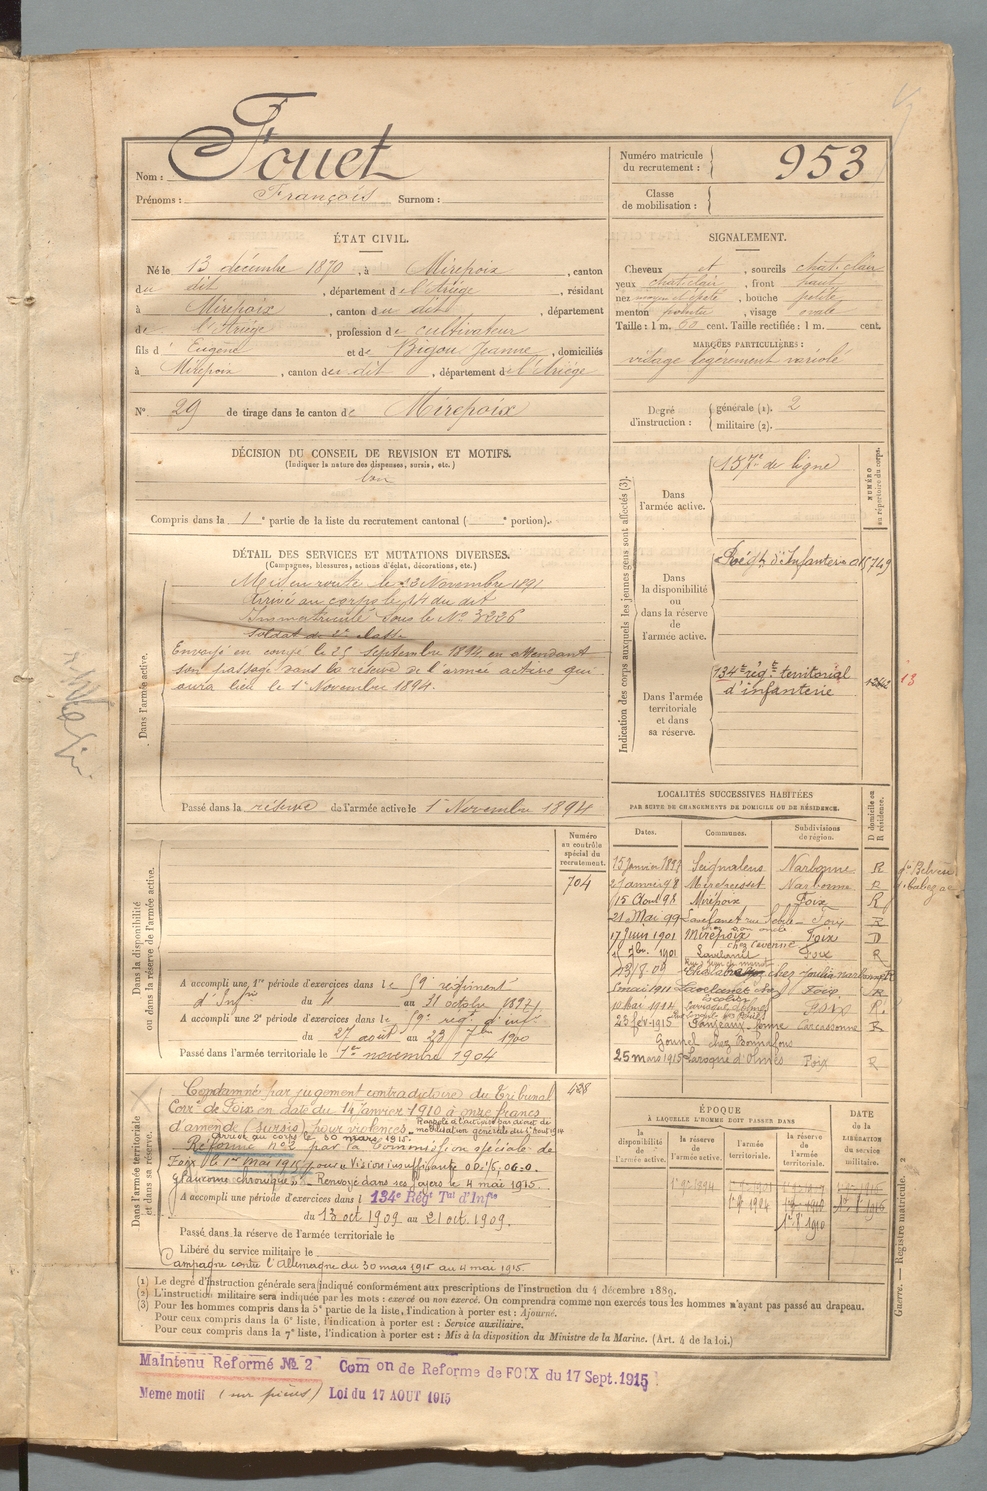 Nom : Fouet
Prénoms : François Surnom :
Numéro matricule du recrutement : 953
Classe de mobilisation :
ÉTAT CIVIL.
Né le 13 décembre 1870, à Mirepoix, canton
du dit, département de l'Ariège, résidant
à Mirepoix, canton du dit, département
de l'Ariège, profession de cultivateur
fils d' Eugène et de Bigou Jeanne, domiciliés
à Mirepoix, canton du dit, département de l'Ariège
N° 29 de tirage dans le canton de Mirepoix
SIGNALEMENT.
Cheveux et, sourcils chat. clair
yeux chat clair, front haut
nez moyen et épaté, bouche petite
menton pointu, visage ovale
Taille : 1 m. 60 cent. Taille rectifiée : 1 m. cent.
MARQUES PARTICULIÈRES :
visage légèrement variolé
Degré d'instruction : générale (1). 2
militaire (2).
DÉCISION DU CONSEIL DE REVISION ET MOTIFS.
(Indiquer la nature des dispenses, sursis, etc.)
bon
Compris dans la 1e partie de la liste du recrutement cantonal ( e portion).
DÉTAIL DES SERVICES ET MUTATIONS DIVERSES.
(Campagnes, blessures, actions d'éclat, décorations, etc.)
Dans l'armée active.
Mis en route le 13 Novembre 1891
Arrivé au corps le 14 du dit
Immatriculé sous le N° 3336
Soldat de 2e classe
Envoyé en congé le 25 Septembre 1894 en attendant
son passage dans la réserve de l'armée active qui
aura lieu le 1er Novembre 1894.
Passé dans la réserve de l'armée active le 1er Novembre 1894
Indication des corps auxquels les jeunes gens sont affectés (3).
NUMÉRO au répertoire du corps.
Dans l'armée active.
157e de ligne
Dans la disponibilité ou dans la réserve de l'armée active.
d'Infanterie 015749
Dans l'armée territoriale et dans sa réserve.
134e régt territorial
d'infanterie
13
LOCALITÉS SUCCESSIVES HABITÉES
PAR SUITE DE CHANGEMENTS DE DOMICILE OU DE RÉSIDENCE.
Dates. Communes. Subdivisions de région. D domicile ou R résidence.
15 Janvier 1897 Seignalens Narbonne R
21 Janvr 98 Narbonne R
15 Aout 98 Mirepoix Foix R
21 Mai 99 Lavelanet rue Foix R
17 Juin 1901 Mirepoix Foix D
1901 Lavelanet Foix R
13/8.09 chez Narbonne R
mai 1911 Lavelanet chez Foix R
mai 1914 Foix R.
23 fev. 1915 Carcassonne R
25 mars 1915 Laroque d'Olmes Foix R
Dans la disponibilité ou dans la réserve de l'armée active.
Numéro au contrôle spécial du recrutement.
704
A accompli une 1re période d'exercices dans le 59 régiment
d'Infrie du 4 au 31 octobre 1897
A accompli une 2e période d'exercices dans le 59e régt d'inf.
du 27 août au 23 7bre 1900
Passé dans l'armée territoriale le 1er novembre 1904
Dans l'armée territoriale et dans sa réserve.
438
Condamné par jugement contradictoire du Tribunal
Correl de Foix en date du 14 Janvier 1910 à onze francs
d'amende (sursis) pour violences. Rappelé à l'activité par décret de
mobilisation générale du 1er Aout 1914
Arrivé au corps le 30 mars 1915.
Réformé n° 2 par la Commission spéciale de
Foix le 1er Mai 1915 pour "Vision insuffisante
glaucome chronique". Renvoyé dans ses foyers le 4 mai 1915.
A accompli une période d'exercices dans l 134e Régt Tal d'Infie
du 13 oct 1909 au 21 oct. 1909.
Passé dans la réserve de l'armée territoriale le
Libéré du service militaire le
Campagne contre l'Allemagne du 30 mars 1915 au 4 mai 1915
ÉPOQUE
À LAQUELLE L'HOMME DOIT PASSER DANS
la disponibilité de l'armée active.
la réserve de l'armée active.
l'armée territoriale.
la réserve de l'armée territoriale.
DATE DE LA LIBÉRATION du service militaire.
1er 9e 1894
Guerre. — Registre matricule. 2
(1) Le degré d'instruction générale sera indiqué conformément aux prescriptions de l'instruction du 4 décembre 1889.
(2) L'instruction militaire sera indiquée par les mots : exercé ou non exercé. On comprendra comme non exercés tous les hommes n'ayant pas passé au drapeau.
(3) Pour les hommes compris dans la 5e partie de la liste, l'indication à porter est : Ajourné.
Pour ceux compris dans la 6e liste, l'indication à porter est : Service auxiliaire.
Pour ceux compris dans la 7e liste, l'indication à porter est : Mis à la disposition du Ministre de la Marine. (Art. 4 de la loi.)
Maintenu Reformé No 2 Com on de Reforme de FOIX du 17 Sept. 1915
Meme motif (sur pièces) Loi du 17 AOUT 1915